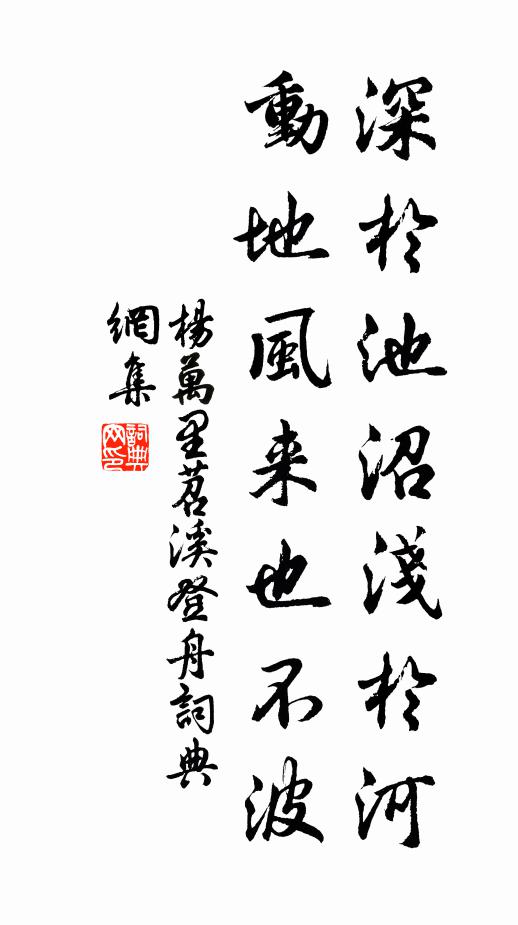 深於池沼淺於河
動地風来也不波
楊萬里苕溪登舟詞典
網集
詞典
网印